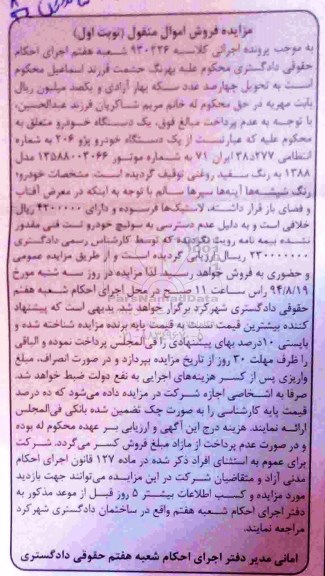 مزایده فروش اموال منقول (نوبت اول)
به موجب پرونده اجرائی کلاسه ۹۳۰۲۲۶ شعبه هفتم اجرای احکام
حقوقی دادگستری محکوم علیه بهرنگ حشمت فرزند اسماعیل محکوم
است به تحویل چهارصد عدد سکه بهار آزادی و یکصد میلیون ریال
بابت مهریه در حق محکوم له خانم مریم شاکریان فرزند عبدالحسین،
با توجه به عدم پرداخت مبالغ فوق، یک دستگاه خودرو متعلق به
محکوم علیه که عبارتست از یک دستگاه خودرو پژو ۲۰۶ به شماره
انتظامی ۳۸د۲۷۷ ایران ۷۱ به شماره موتور ۱۳۵۸۸۰۰۳۰۶۶ مدل
۱۳۸۸ به رنگ سفید روغنی توقیف گردیده است. مشخصات خودرو:
رنگ شیشه‌ها آینه‌ها سپرها سالم با توجه به اینکه در معرض آفتاب
و فضای باز قرار داشته، لاستیک‌ها فرسوده و دارای ۴۲۰۰۰۰۰ ریال
خلافی است و به دلیل عدم دسترسی به سوئیچ خودرو تست فنی مقدور
نشده بیمه نامه رویت نگردیده که توسط کارشناس رسمی دادگستری
۲۳۰۰۰۰۰۰۰ ریال ارزیابی گردیده است و از طریق مزایده عمومی
و حضوری به فروش خواهد رسید. لذا مزایده در روز سه شنبه مورخ
۹۴/۸/۱۹ راس ساعت ۱۱ صبح در محل اجرای احکام شعبه هفتم
حقوقی دادگستری شهرکرد برگزار خواهد شد. بدیهی است که پیشنهاد
کننده بیشترین قیمت نسبت به قیمت پایه برنده مزایده شناخته شده و
بایستی ۱۰درصد بهای پیشنهادی را فی‌المجلس پرداخت نموده و الباقی
را ظرف مهلت ۳۰ روز از تاریخ مزایده بپردازد و در صورت انصراف، مبلغ
واریزی پس از کسر هزینه‌های اجرایی به نفع دولت ضبط خواهد شد.
صرفا به اشخاصی اجازه شرکت در مزایده داده می‌شود که ده درصد
قیمت پایه کارشناسی را به صورت چک تضمین شده بانکی فی‌المجلس
ارائه نمایند. هزینه درج این آگهی و ارزیابی بر عهده محکوم له بوده
و در صورت عدم پرداخت از مازاد مبلغ فروش کسر می‌گردد. شرکت
برای عموم به استثنای افراد ذکر شده در ماده ۱۲۷ قانون اجرای احکام
مدنی آزاد و متقاضیان شرکت در این مزایده می‌توانند جهت بازدید
مورد مزایده و کسب اطلاعات بیشتر ۵ روز قبل از موعد مذکور به
دفتر اجرای احکام شعبه هفتم واقع در ساختمان دادگستری شهرکرد
مراجعه نمایند.
امانی مدیر دفتر اجرای احکام شعبه هفتم حقوقی دادگستری